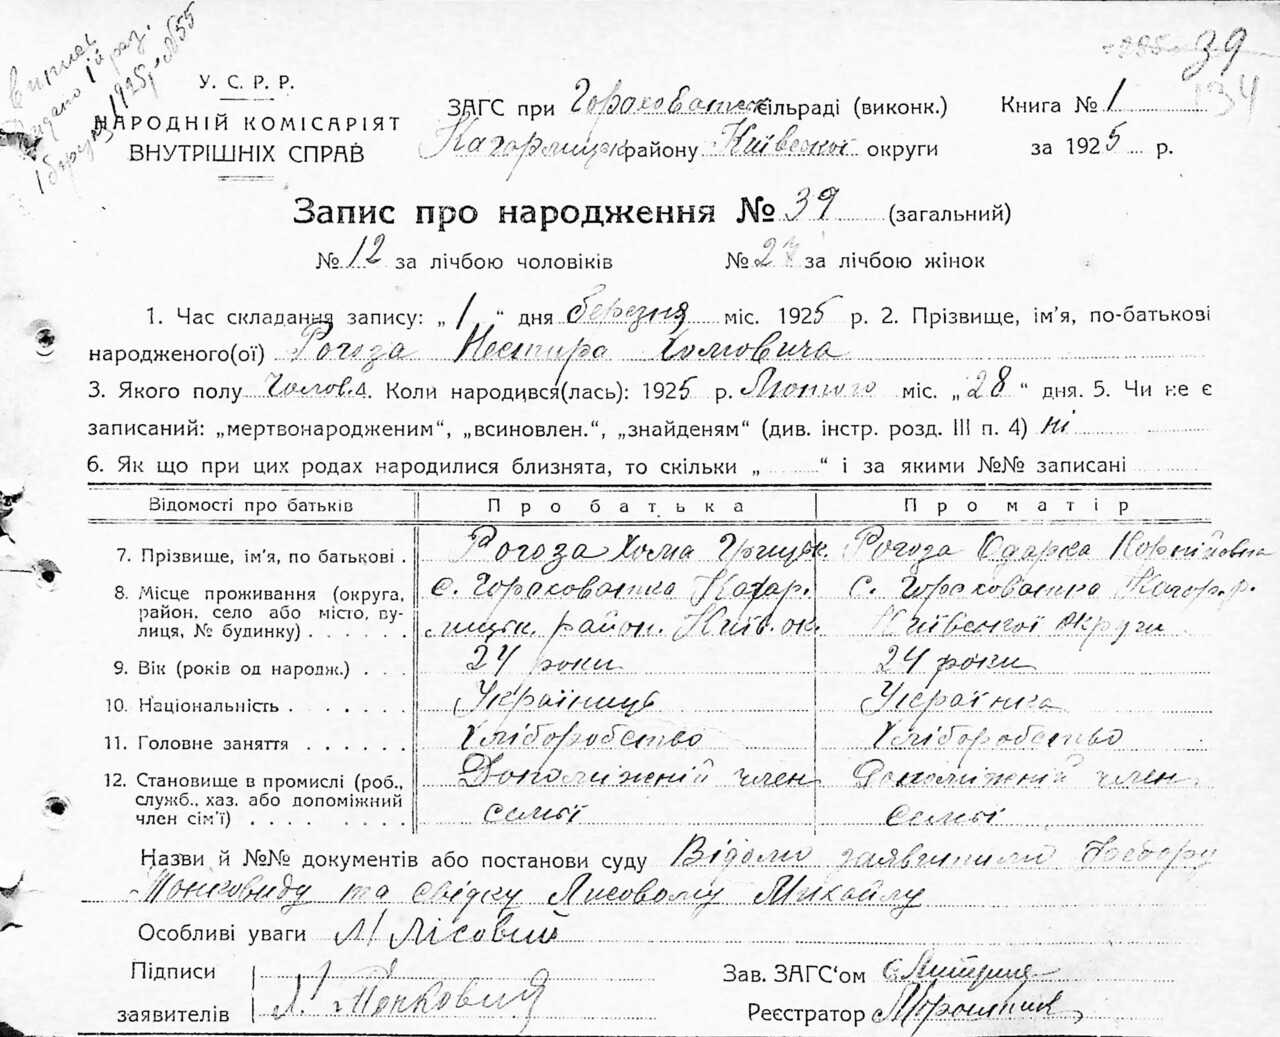 Випись
видано 1й раз.
1 березня 1925р. №55
39
134
У. С. Р. Р.
НАРОДНІЙ КОМІСАРІЯТ
ВНУТРІШНІХ СПРАВ
ЗАГС при Гороховатск сільраді (виконк.)
Кагарлицьк району Київської округи
Книга № 1
за 1925 р.
Запис про народження № 39 (загальний)
№ 12 за лічбою чоловіків № 27 за лічбою жінок
1. Час складання запису: „ 1 “ дня березня міс. 1925 р. 2. Прізвище, ім'я, по-батькові
народженого(ої) Рогоза Нестира Хомовича
3. Якого полу Чолов. 4. Коли народився(лась): 1925 р. Лютого міс. „ 28 “ дня. 5. Чи не є
записаний: „мертвонародженим“, „всиновлен.“, „знайденям“ (див. інстр. розд. III п. 4) ні
6. Як що при цих родах народилися близнята, то скільки „ “ і за якими №№ записані
Відомості про батьків Про батька Про матір
7. Прізвище, ім'я, по батькові . Рогоза Хома Грицьк. Рогоза Одарка Корнійовна
8. Місце проживання (округа, район, село або місто, вулиця, № будинку) . . . . . . с. Гороховатка Кагар. с. Гороховатка Кагор. р.
лицьк. район. Київ. ок. Київської округи
9. Вік (років од народж.) . . . 24 роки 24 роки
10. Національність . . . . . . Українець Українка
11. Головне заняття . . . . . . Хліборобство Хліборобство
12. Становище в промислі (роб., служб., хаз. або допоміжний член сім'ї) . . . . . . . . Допоміжний член Допоміжний член
семьї семьї
Назви й №№ документів або постанови суду Відомо заявителю
та свідку Лисовому Михайлу
Особливі уваги М Лісовий
Підписи
заявителів
Зав. ЗАГС‘ом
Реєстратор